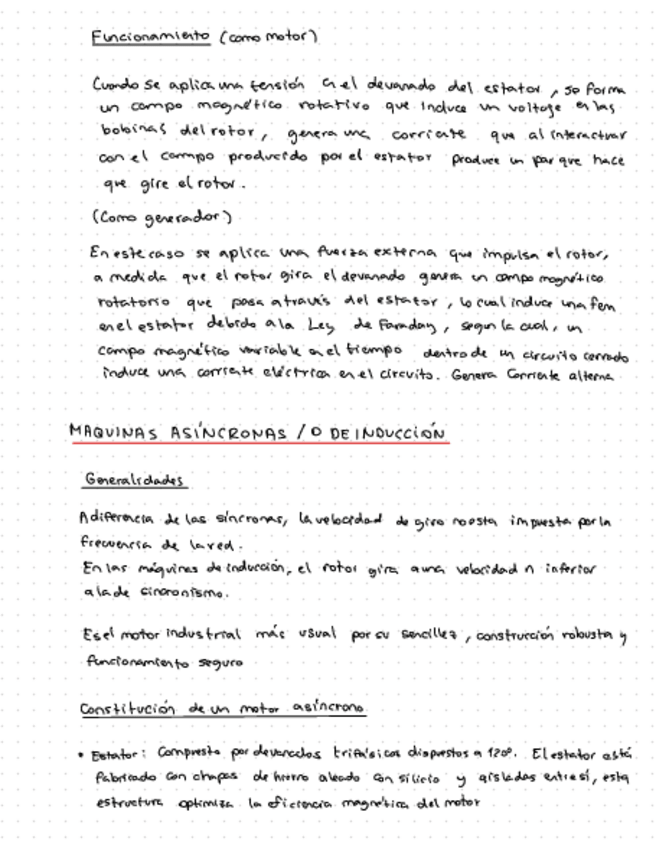 Funcionamiento (como motor)
Cuando se aplica una tensión en el devanado del estator, se forma
un campo magnético rotativo que induce un voltaje en las
bobinas del rotor, genera una corriente que al interactuar
con el campo producido por el estator produce un par que hace
que gire el rotor.
(Como generador)
En este caso se aplica una fuerza externa que impulsa el rotor,
a medida que el rotor gira el devanado genera un campo magnético
rotatorio que pasa a través del estator, lo cual induce una fem
en el estator debido a la Ley de Faraday, segun la cual, un
campo magnético variable en el tiempo dentro de un circuito cerrado
induce una corriente eléctrica en el circuito. Genera Corriente alterna
MAQUINAS ASÍNCRONAS / O DE INDUCCIÓN
Generalidades
A diferencia de las síncronas, la velocidad de giro no esta impuesta por la
frecuencia de la red.
En las máquinas de inducción, el rotor gira a una velocidad n inferior
a la de sincronismo.
Es el motor industrial más usual por su sencillez, construcción robusta y
funcionamiento seguro
Constitución de un motor asíncrono
• Estator: Compuesto por devanados trifásicos dispuestos a 120º. El estator está
fabricado con chapas de hierro aleado con silicio y aisladas entre sí, esta
estructura optimiza la eficiencia magnética del motor